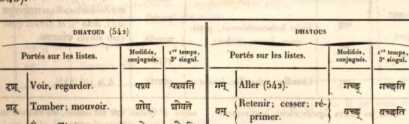 DHATOUS (542) DHATOUS
Portés sur les listes. Modifiés, conjugués. 1er temps, 3e singul. Portés sur les listes. Modifiés, conjugués. 1er temps, 3e singul.
दृश् Voir, regarder. पश्य पश्यति गम् Aller (542) गच्छ् गच्छति
शद् Tomber; mouvoir. शीय् शीयते यम् Retenir; cesser; ré-
primer. यच्छ् यच्छति